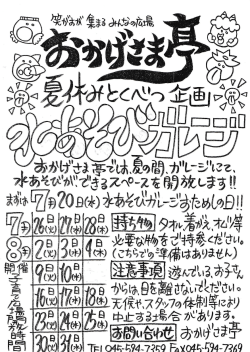 笑がおが 集まる みんなの広場
おかげさま亭
夏休みとくべつ企画
水あそびガレージ
おかげさま亭では、夏の間、ガレージにて、
水あそびができるスペースを開放します!!
まずは 7月20日(水) 水あそびガレージおためしの日!!
7月 26日(火) 27日(水) 28日(木)
8月 2日(火) 3日(水) 4日(木)
9日(火) 10日(水)
16日(火) 17日(水) 18日(木)
23日(火) 24日(水) 25日(木)
30日(火) 31日(水)
開催
子育て広場開放時間
持ち物 タオル、着がえ、オムツ等
必要な物をご持参ください。
(こちらでの準備はありません)
注意事項 遊んでいるお子さん
からは、目を離さないでください。
天候や、スタッフの体制等により
中止する場合があります。
お問い合わせ おかげさま亭
TEL 045-594-7359 Fax 045-594-7369